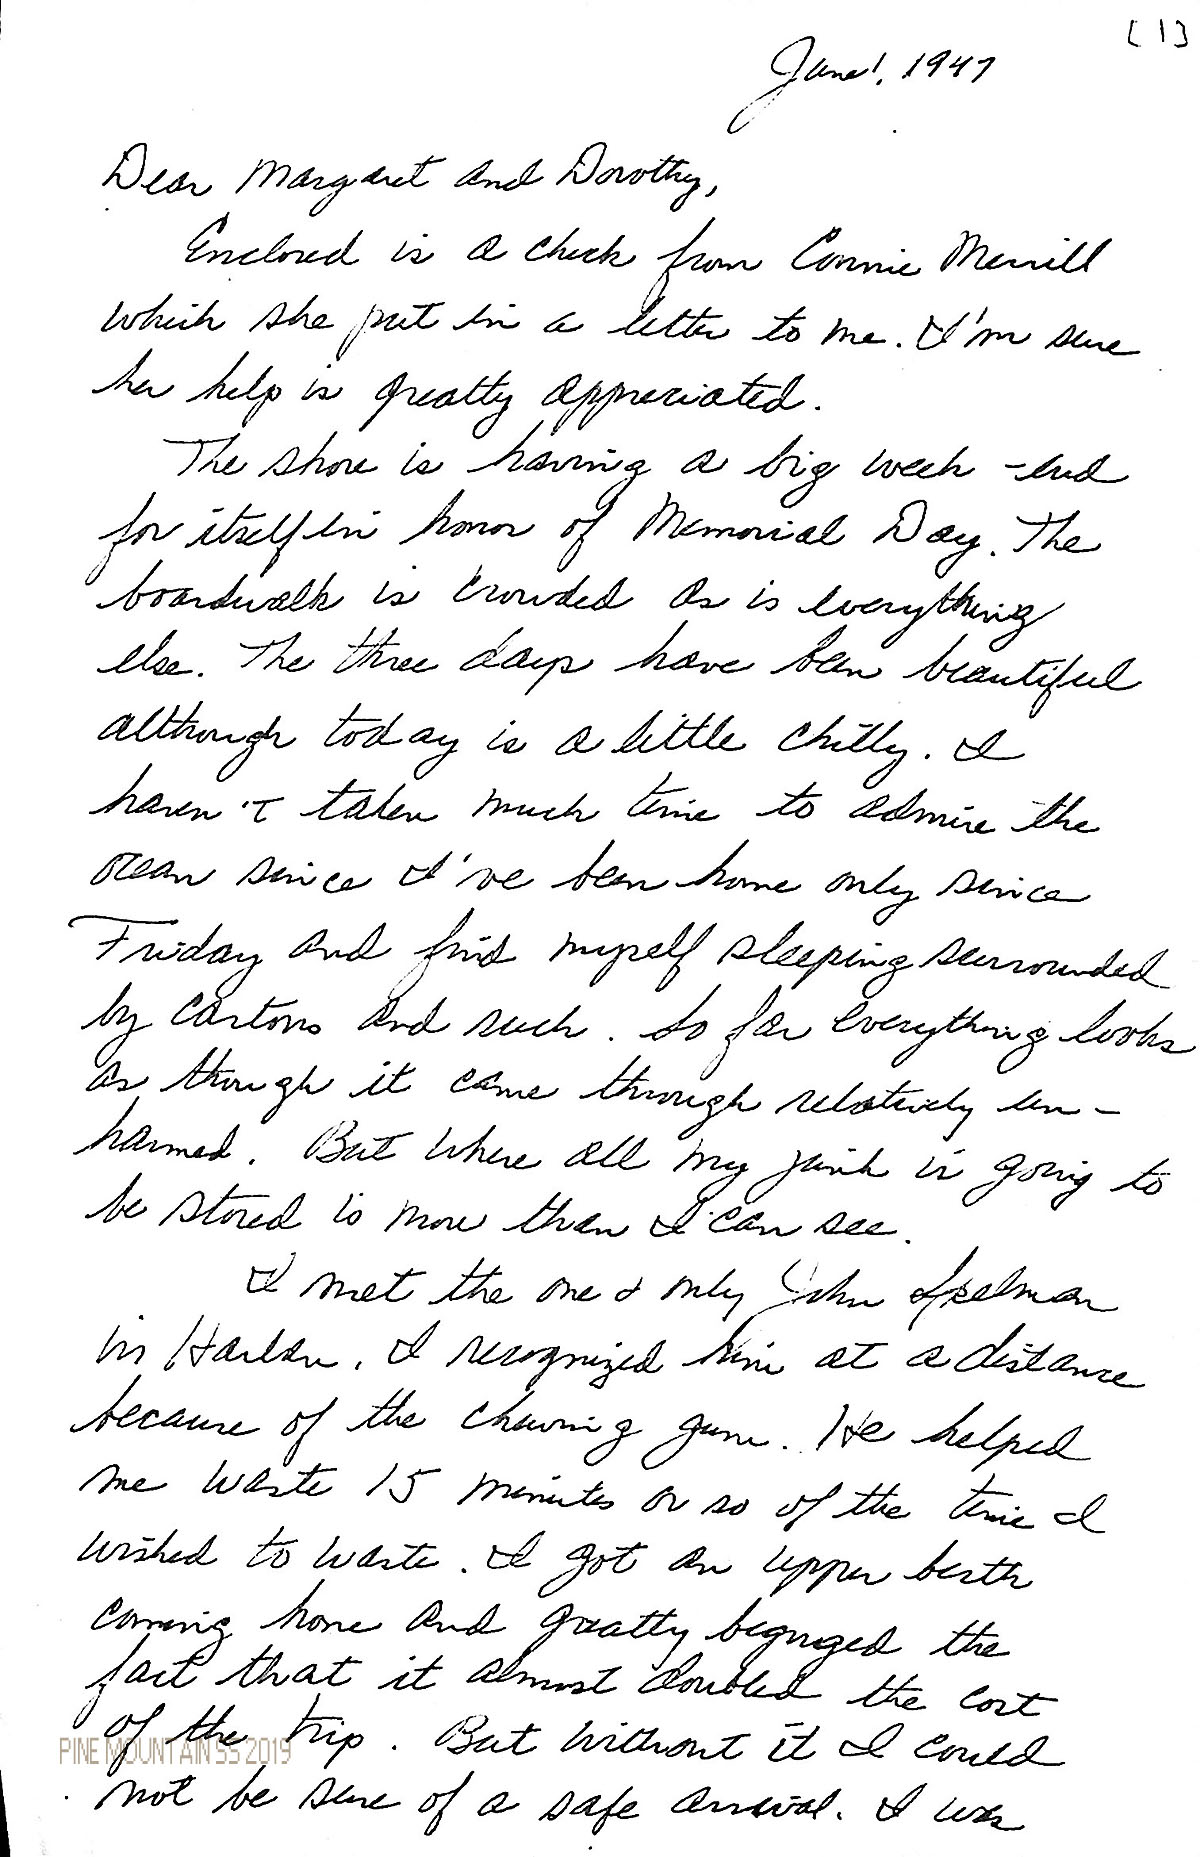 [1]
June 1, 1947
Dear Margaret and Dorothy,
Enclosed is a check from Connie Merrill
which she put in a letter to me. I'm sure
her help is greatly appreciated.
The shore is having a big week-end
for itself in honor of Memorial Day. The
boardwalk is crowded as is everything
else. The three days have been beautiful
although today is a little chilly. I
haven't taken much time to admire the
ocean since I've been home only since
Friday and find myself sleeping surrounded
by cartons and such. So far everything looks
as though it came through relatively un-
harmed. But where all my junk is going to
be stored is more than I can see.
I met the one & only John Spelman
in Harlan. I recognized him at a distance
because of the chewing gum. He helped
me waste 15 minutes or so of the time I
wished to waste. I got an upper berth
coming home and greatly begruged the
fact that it almost doubled the cost
of the trip. But without it I could
not be sure of a safe arrival. I was
PINE MOUNTAIN SS 2019